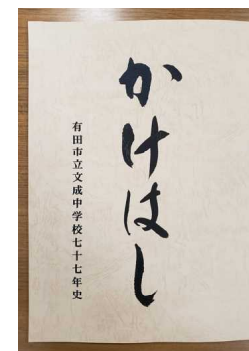 かけはし
有田市立文成中学校七十七年史